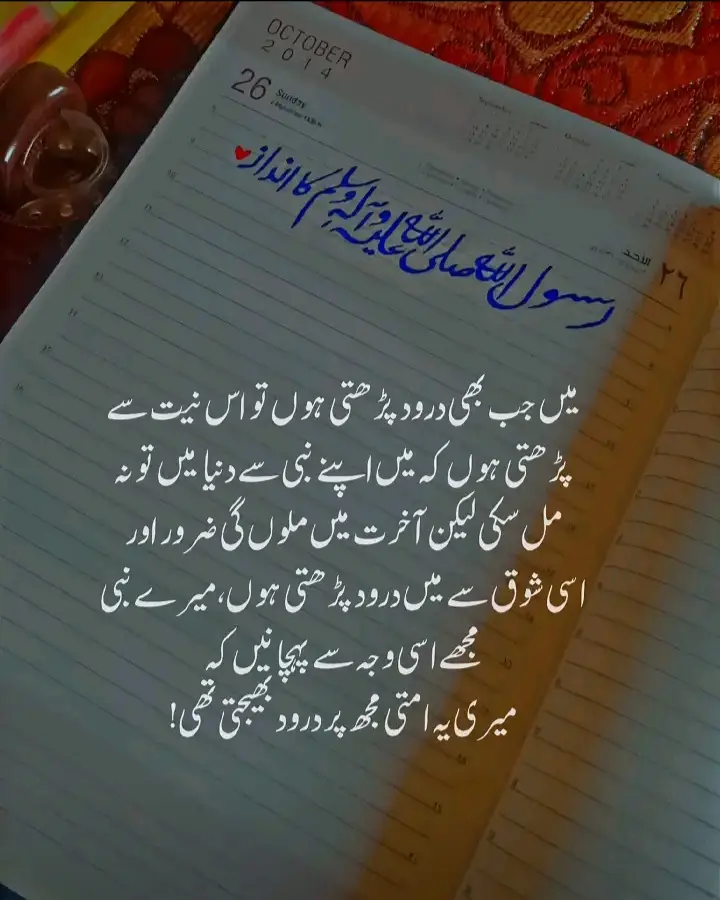 OCTOBER
2014
26 Sunday
الاحد ٢٦
رسول اللہ صلی اللہ علیہ وآلہ وسلم کا انداز
میں جب بھی درود پڑھتی ہوں تو اس نیت سے
پڑھتی ہوں کہ میں اپنے نبی سے دنیا میں تو نہ
مل سکی لیکن آخرت میں ملوں گی ضرور اور
اسی شوق سے میں درود پڑھتی ہوں، میرے نبی
مجھے اسی وجہ سے پہچانیں کہ
میری یہ امتی مجھ پر درود بھیجتی تھی!